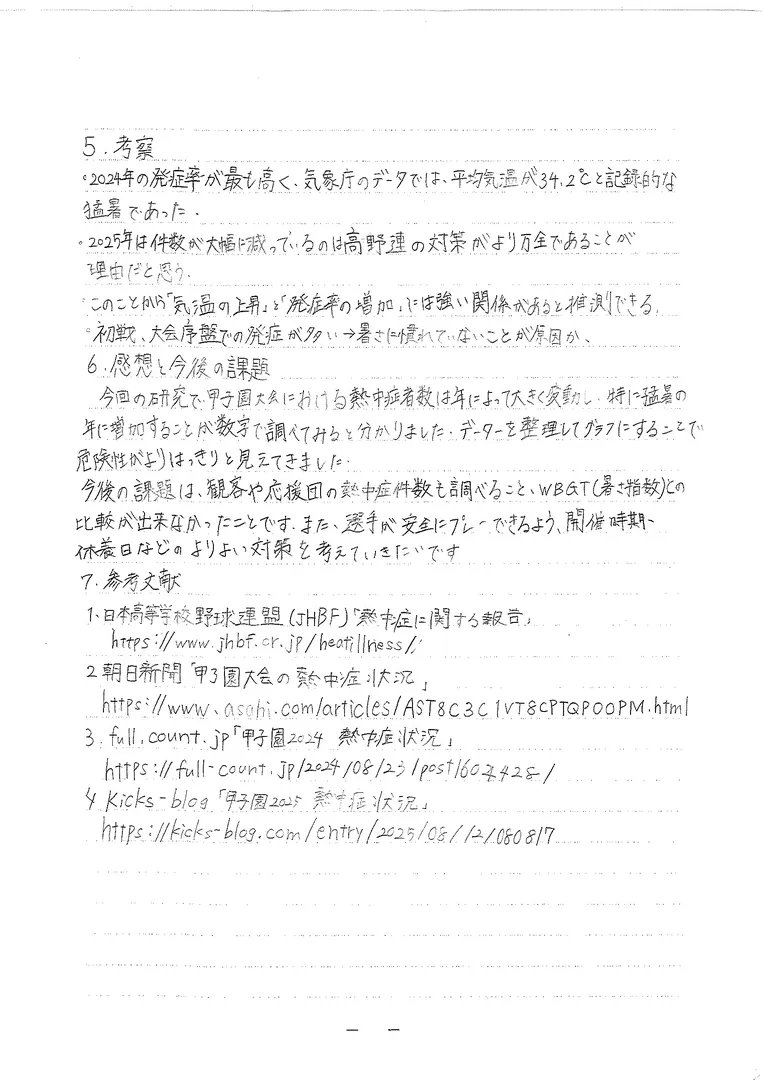 5.考察
・2024年の発症率が最も高く、気象庁のデータでは、平均気温が34.2℃と記録的な
猛暑であった.
・2025年は件数が大幅に減っているのは高野連の対策がより万全であることが
理由だと思う.
・このことから「気温の上昇」と「発症率の増加」には強い関係があると推測できる.
・初戦、大会序盤での発症が多い→暑さに慣れていないことが原因か、
6.感想と今後の課題
今回の研究で、甲子園大会における熱中症者数は年によって大きく変動し、特に猛暑の
年に増加することが数字で調べてみると分かりました.データーを整理してグラフにすることで
危険性がよりはっきりと見えてきました.
今後の課題は、観客や応援団の熱中症件数も調べること、WBGT(暑さ指数)との
比較が出来なかったことです.また、選手が安全にプレーできるよう、開催時期、
休養日などのよりよい対策を考えていきたいです
7.参考文献
1.日本高等学校野球連盟(JHBF)「熱中症に関する報告」
https://www.jhbf.or.jp/heatillness/
2 朝日新聞「甲子園大会の熱中症状況」
https://www.asahi.com/articles/AST8C3C1VT8CPTQP00PM.html
3.full.count.jp「甲子園2024 熱中症状況」
https://full-count.jp/2024/08/23/post1604428/
4 Kicks-blog「甲子園2025 熱中症状況」
https://kicks-blog.com/entry/2025/08/12/080817